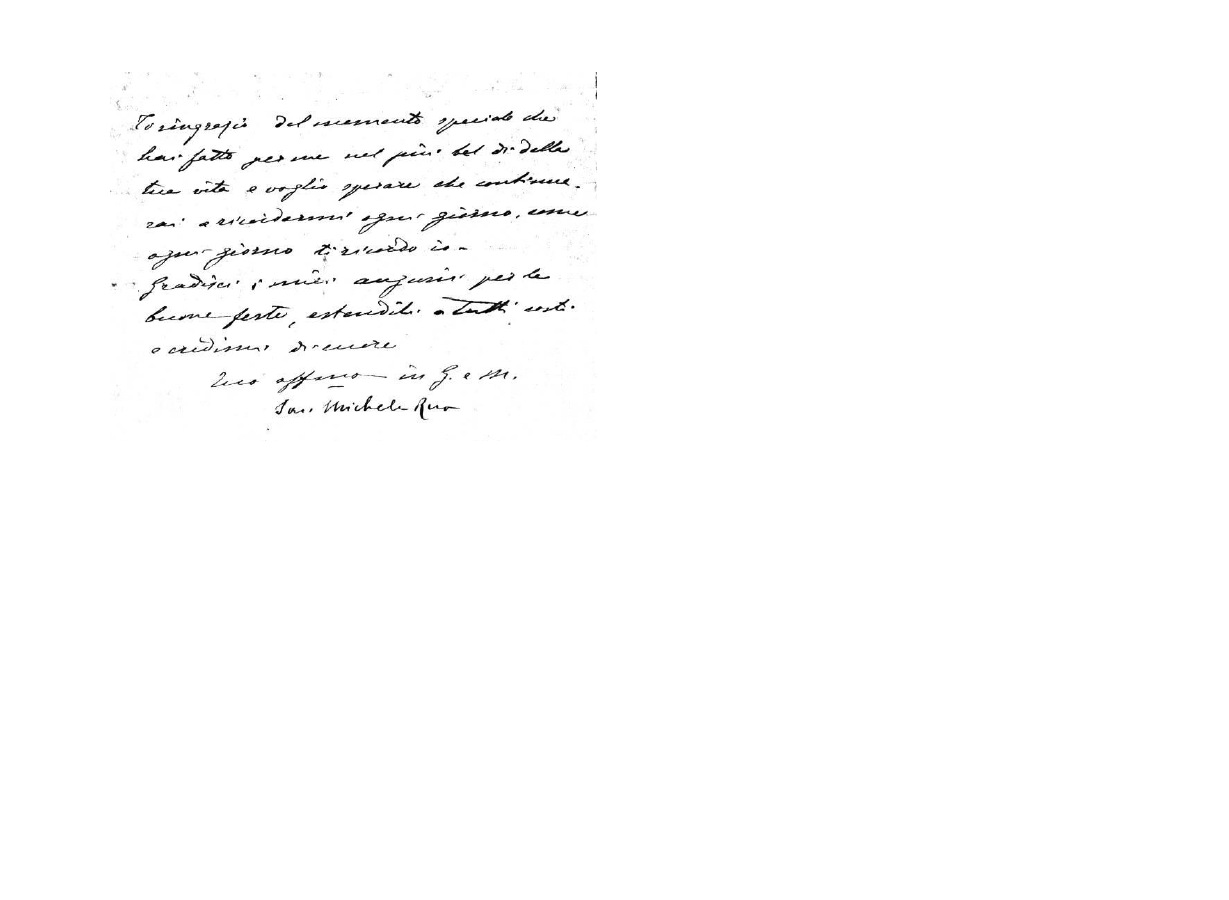 Ti ringrazio del memento speciale che
hai fatto per me nel più bel dì della
tua vita e voglio sperare che continue-
rai a ricordarmi ogni giorno, come
ogni giorno ti ricordo io -
Gradisci i miei auguri per le
buone feste, estendili a tutti costì
e credimi di cuore
Tuo affmo in G. e M.
Sac. Michele Rua